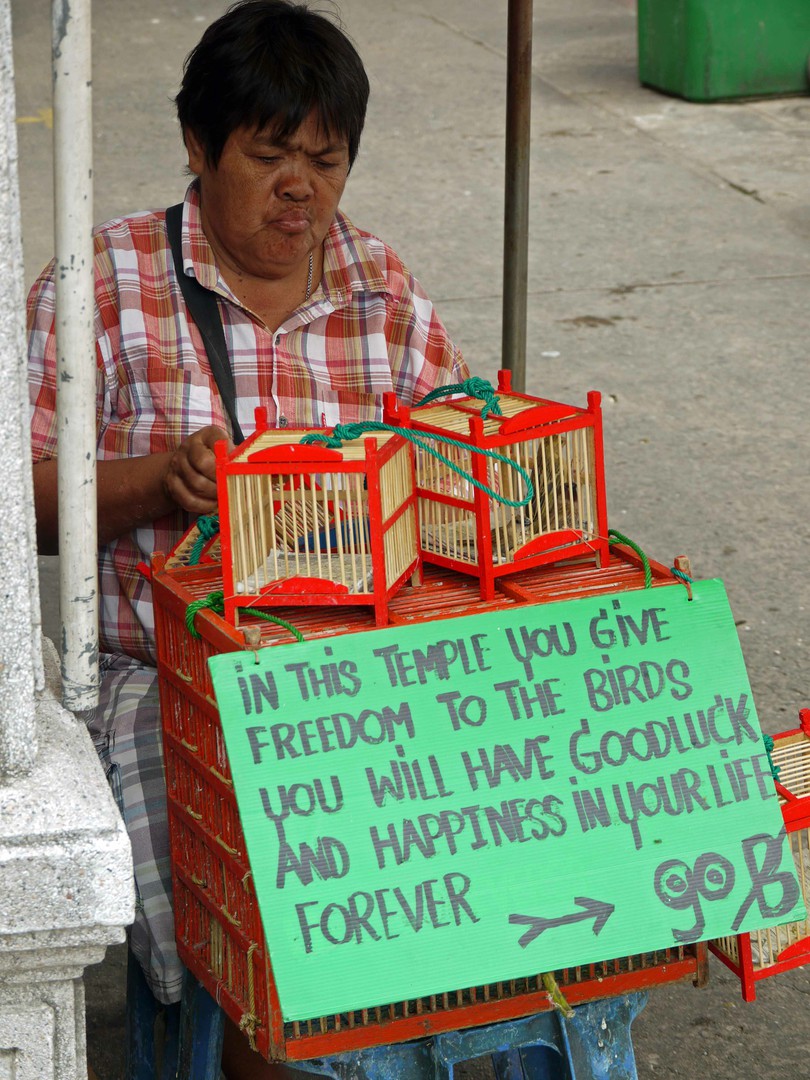 iN THiS TEMPLE YOU GiVE
FREEDOM TO THE BiRDS
YOU WiLL HAVE GOODLUCK
AND HAPPINESS iN YOUR LiFE
FOREVER → 90 B